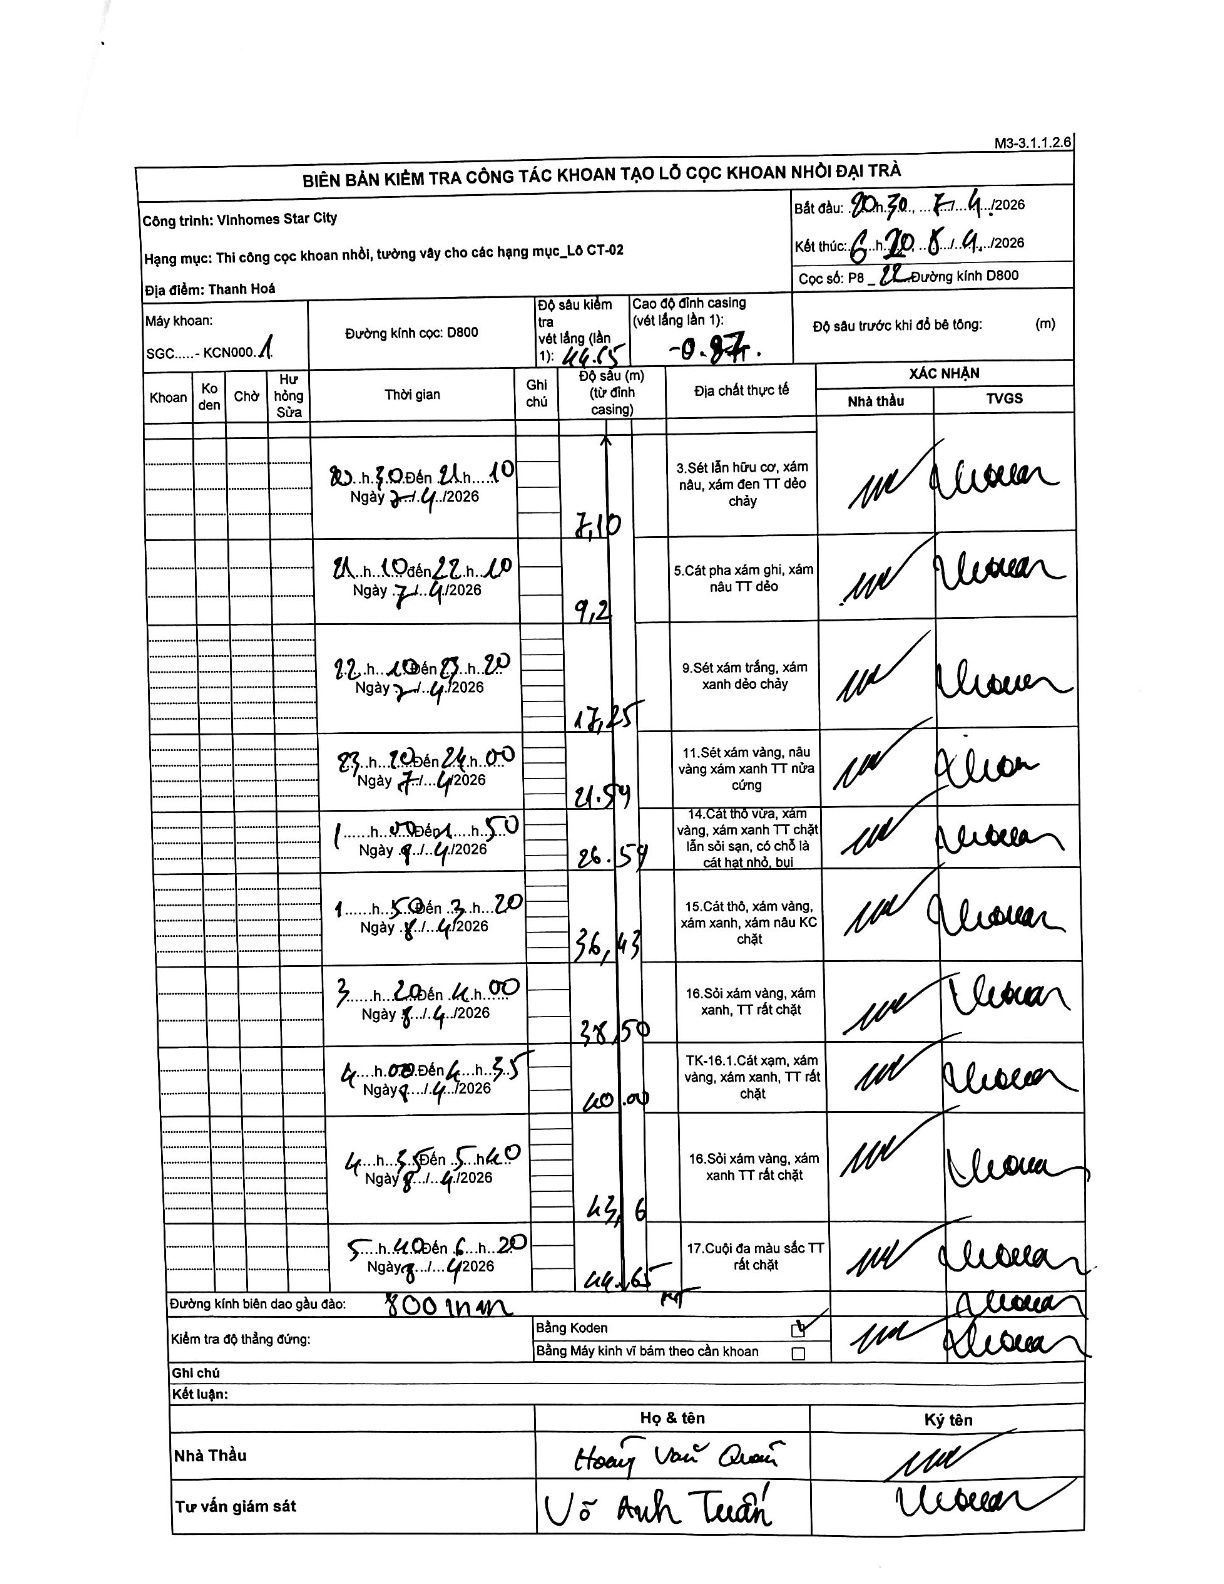 M3-3.1.1.2.6
BIÊN BẢN KIỂM TRA CÔNG TÁC KHOAN TẠO LỖ CỌC KHOAN NHỒI ĐẠI TRÀ
Công trình: Vinhomes Star City
Hạng mục: Thi công cọc khoan nhồi, tường vây cho các hạng mục_Lô CT-02
Địa điểm: Thanh Hoá
Bắt đầu: 20h.30, 7/4/2026
Kết thúc: 6h20, 8/4/2026
Cọc số: P8_22 Đường kính D800
Máy khoan:
SGC.....- KCN000.1
Đường kính cọc: D800
Độ sâu kiểm tra
vét lắng (lần
1): 44.65
Cao độ đỉnh casing
(vét lắng lần 1):
-0.87
Độ sâu trước khi đổ bê tông: (m)
Khoan
Ko den
Chờ
Hư hỏng Sửa
Thời gian
Ghi chú
Độ sâu (m)
(từ đỉnh
casing)
Địa chất thực tế
XÁC NHẬN
Nhà thầu
TVGS
20.h.30.Đến 21.h.10
Ngày 7/4/2026
7,10
3.Sét lẫn hữu cơ, xám
nâu, xám đen TT dẻo
chảy
21.h.10 đến 22.h.10
Ngày 7/4/2026
9,2
5.Cát pha xám ghi, xám
nâu TT dẻo
22.h.10 Đến 23.h.20
Ngày 7/4/2026
17,25
9.Sét xám trắng, xám
xanh dẻo chảy
23.h.20 Đến 24.h.00
Ngày 7/4/2026
21.59
11.Sét xám vàng, nâu
vàng xám xanh TT nửa
cứng
1.h.00 Đến 1.h.50
Ngày 8/4/2026
26.59
14.Cát thô vừa, xám
vàng, xám xanh TT chặt
lẫn sỏi sạn, có chỗ là
cát hạt nhỏ, bụi
1.h.50 Đến 3.h.20
Ngày 8/4/2026
36,43
15.Cát thô, xám vàng,
xám xanh, xám nâu KC
chặt
3.h.20 Đến 4.h.00
Ngày 8/4/2026
38,50
16.Sỏi xám vàng, xám
xanh, TT rất chặt
4.h.00 Đến 4.h.35
Ngày 8/4/2026
40.00
TK-16.1.Cát xạm, xám
vàng, xám xanh, TT rất
chặt
4.h.35 Đến 5.h40
Ngày 8/4/2026
43,6
16.Sỏi xám vàng, xám
xanh TT rất chặt
5.h.40 Đến 6.h.20
Ngày 8/4/2026
44.65
17.Cuội đa màu sắc TT
rất chặt
Đường kính biên dao gầu đào: 800mm
Kiểm tra độ thẳng đứng:
Bằng Koden
Bằng Máy kinh vĩ bám theo cần khoan
Ghi chú
Kết luận:
Họ & tên
Ký tên
Nhà Thầu
Hoàng Văn Quân
Tư vấn giám sát
Võ Anh Tuấn